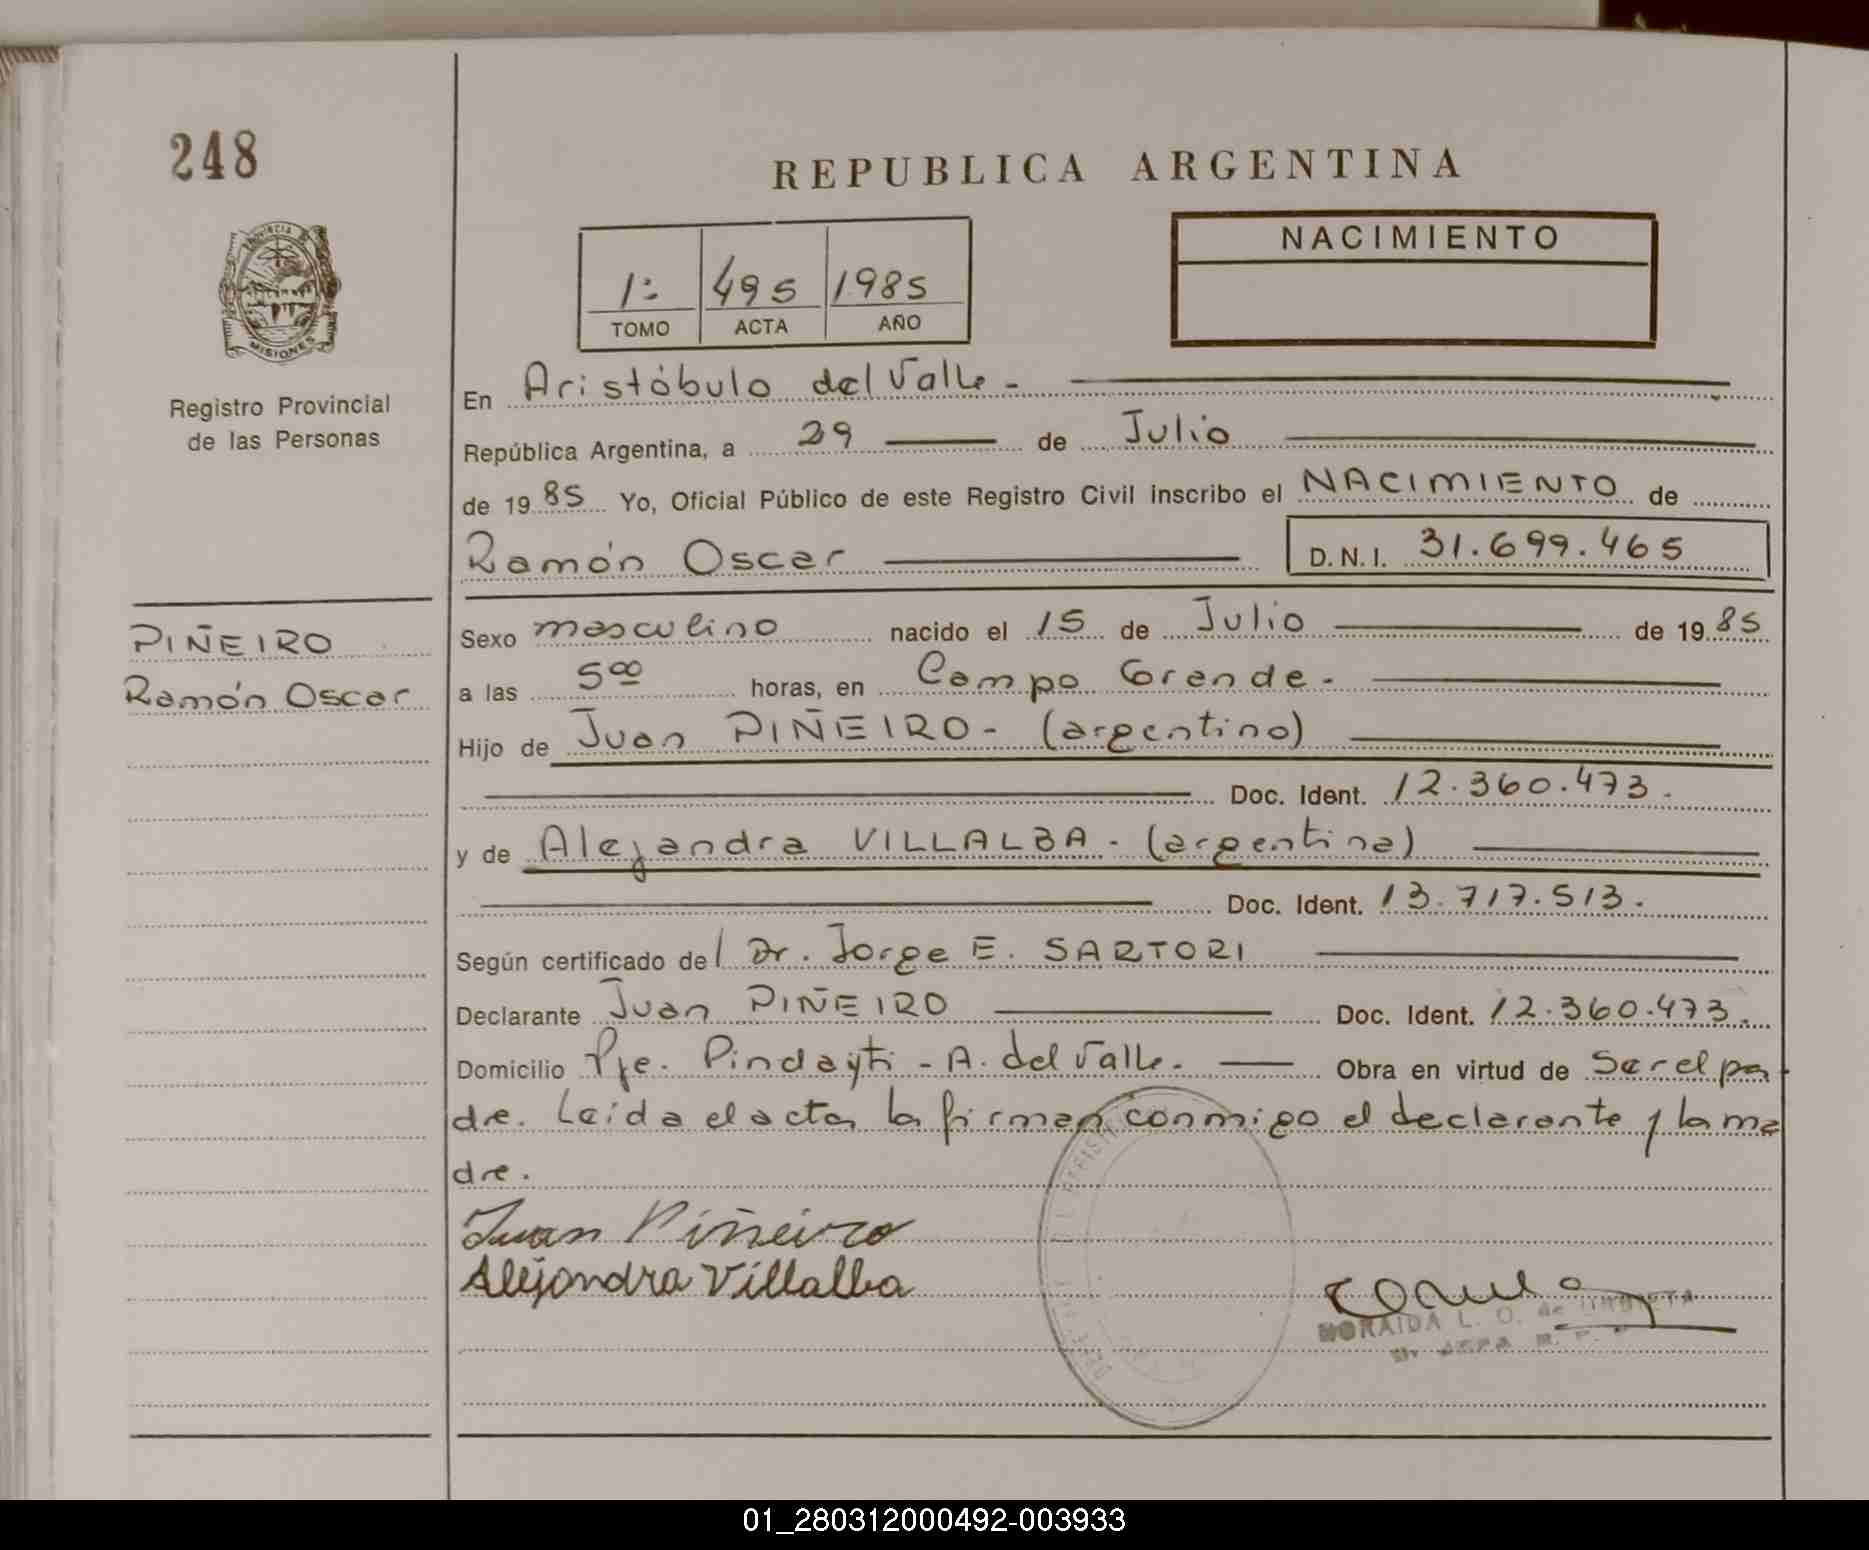 248
REPUBLICA ARGENTINA
PROVINCIA DE
MISIONES
Registro Provincial
de las Personas
1º 495 1985
TOMO ACTA AÑO
NACIMIENTO
En Aristóbulo del Valle -
República Argentina, a 29 de Julio
de 1985 Yo, Oficial Público de este Registro Civil inscribo el NACIMIENTO de
Ramón Oscar D.N.I. 31.699.465
PIÑEIRO
Ramón Oscar
Sexo masculino nacido el 15 de Julio de 1985
a las 5 00 horas, en Campo Grande.
Hijo de Juan PIÑEIRO - (argentino)
Doc. Ident. 12.360.473.
y de Alejandra VILLALBA - (argentina)
Doc. Ident. 13.717.513.
Según certificado del Dr. Jorge E. SARTORI
Declarante Juan PIÑEIRO Doc. Ident. 12.360.473.
Domicilio Pje. Pindayti - A. del Valle. Obra en virtud de Ser el pa
dre. Leida el acta la firman conmigo el declarante y la ma
dre.
Juan Piñeiro
Alejandra Villalba
NORAIDA L. O. de URBIETA
01_280312000492-003933